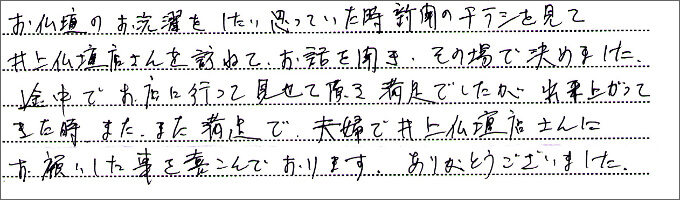 お仏壇のお洗濯をしたい思っていた時新聞のチラシを見て
井上仏壇店さんを訪ねて、お話を聞き、その場で決めました。
途中でお店に行って見せて頂き満足でしたが、出来上がって
きた時また、また満足で、夫婦で井上仏壇店さんに
お願いした事を喜こんでおります。ありがとうございました。